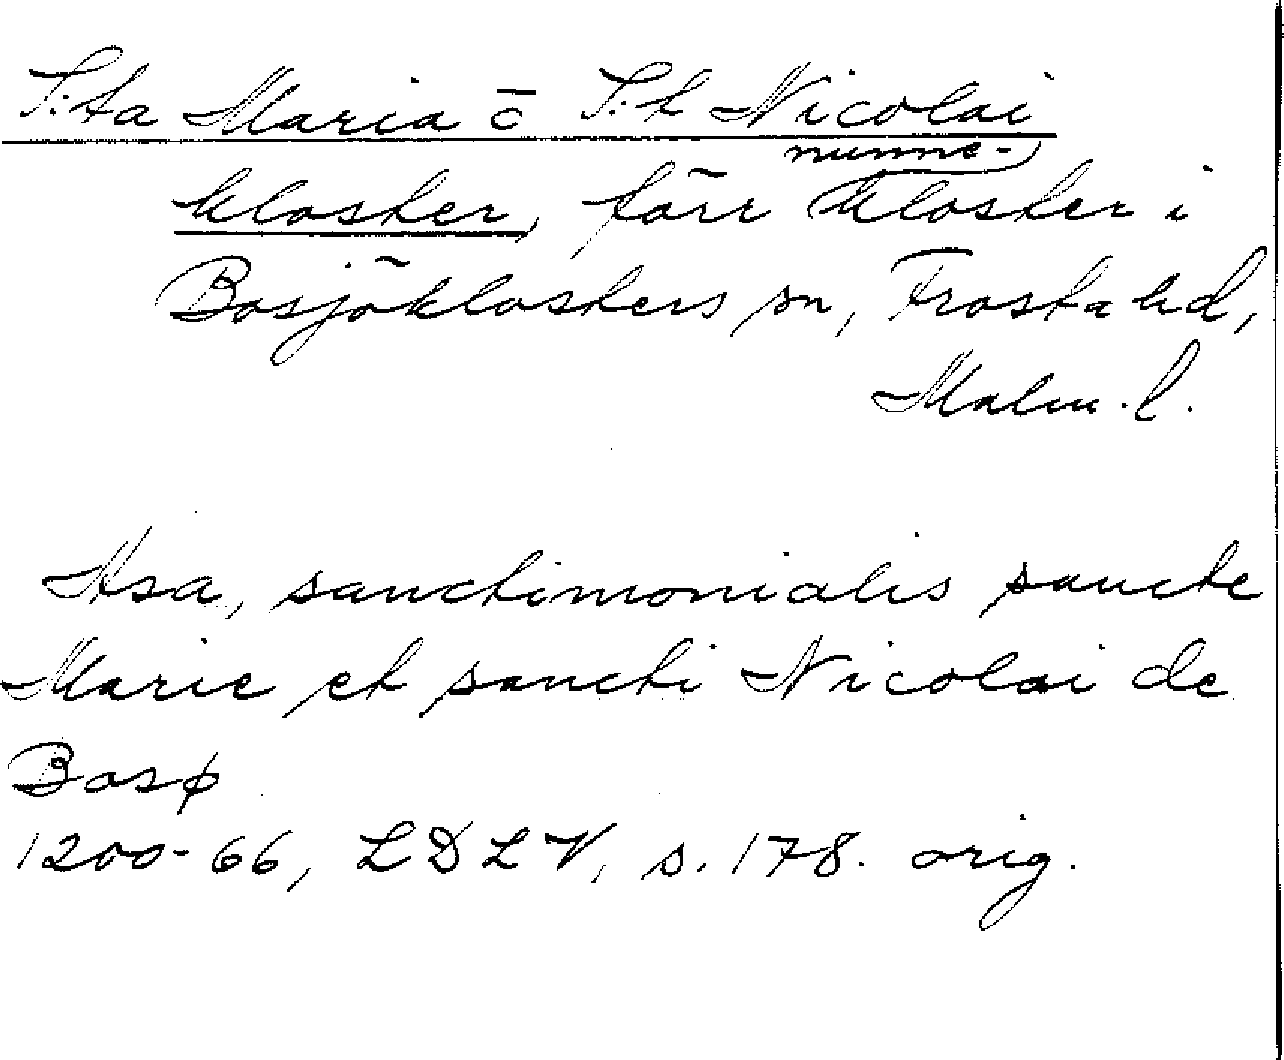 S:ta Maria o S:t Nicolai
kloster, förr nunnekloster i
Bosjöklosters sn, Frosta hd,
Malm. l.
Asa, sanctimonialis sancte
Marie et sancti Nicolai de
Bosø
1200-66, LDLV, s. 178. orig.